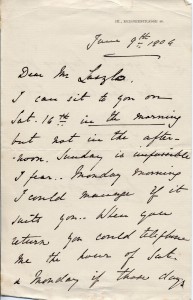 June 9th 1904
Dear Mr Laszlo.
I can sit to you on
Sat. 16th in the morning
but not in the after-
noon. Sunday is impossible
I fear.. Monday morning
I could manage if it
suits you.. When you
return you could telephone
me the hour of Sat.
a Monday if those days